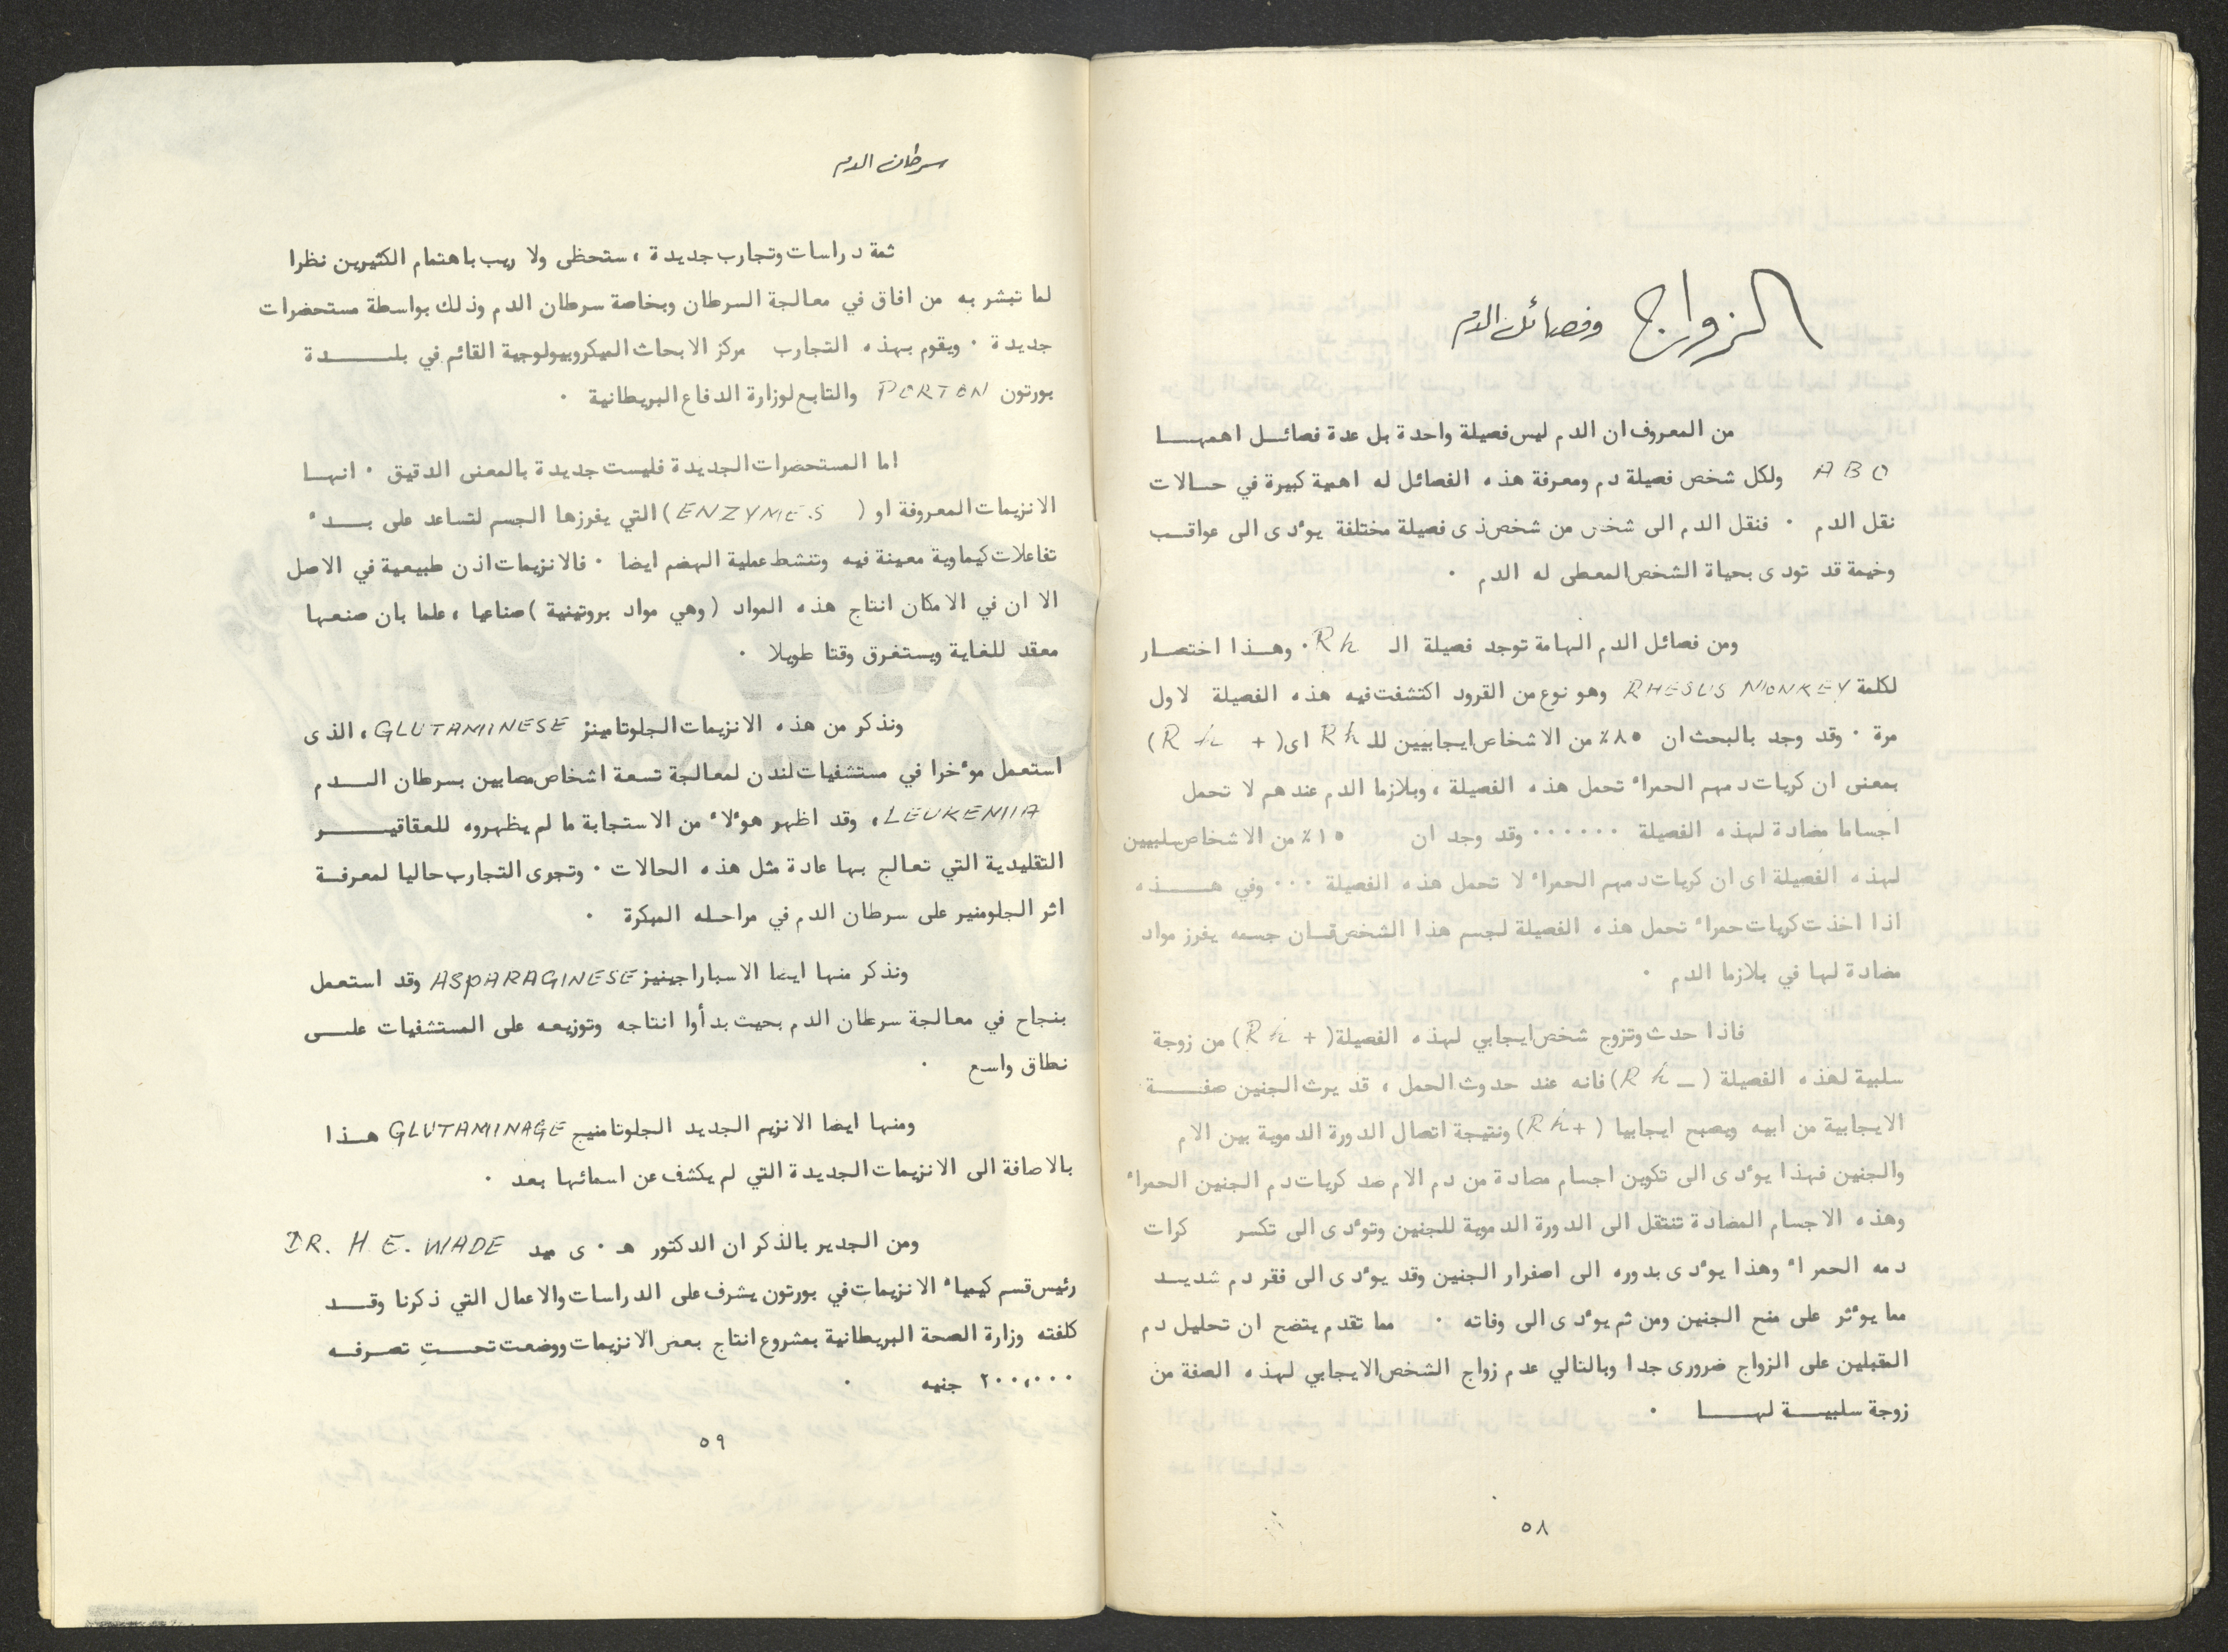 الزواج وفصائل الدم
من المعروف ان الدم ليس فصيلة واحدة بل عدة فصائل اهمها
A B O ولكل شخص فصيلة دم ومعرفة هذه الفصائل له اهمية كبيرة في حالات
نقل الدم . فنقل الدم الى شخص من شخص ذى فصيلة مختلفة يوءدى الى عواقب
وخيمة قد تودى بحياة الشخص المعطى له الدم .
ومن فصائل الدم الهامة توجد فصيلة الـ Rh . وهذا اختصار
لكلمة RHESUS MONKEY وهو نوع من القرود اكتشفت فيه هذه الفصيلة لاول
مرة . وقد وجد بالبحث ان ٨٥٪ من الاشخاص ايجابيين للـ Rh اى ( + Rh )
بمعنى ان كريات دمهم الحمراء تحمل هذه الفصيلة ، وبلازما الدم عندهم لا تحمل
اجساما مضادة لهذه الفصيلة ...... وقد وجد ان ١٥٪ من الاشخاص سلبيين
لهذه الفصيلة اى ان كريات دمهم الحمراء لا تحمل هذه الفصيلة ... وفي هذه
اذا اخذت كريات حمراء تحمل هذه الفصيلة لجسم هذا الشخص فان جسمه يفرز مواد
مضادة لها في بلازما الدم .
فاذا حدث وتزوج شخص ايجابي لهذه الفصيلة ( + Rh ) من زوجة
سلبية لهذه الفصيلة ( – Rh ) فانه عند حدوث الحمل ، قد يرث الجنين صفة
الايجابية من ابيه ويصبح ايجابيا ( +Rh ) ونتيجة اتصال الدورة الدموية بين الام
والجنين فهذا يوءدى الى تكوين اجسام مضادة من دم الام ضد كريات دم الجنين الحمراء
وهذه الاجسام المضادة تنتقل الى الدورة الدموية للجنين وتوءدى الى تكسر كرات
دمه الحمراء وهذا يوءدى بدوره الى اصفرار الجنين وقد يوءدى الى فقر دم شديد
مما يوءثر على مخ الجنين ومن ثم يوءدى الى وفاته . مما تقدم يتضح ان تحليل دم
المقبلين على الزواج ضرورى جدا وبالتالي عدم زواج الشخص الايجابي لهذه الصفة من
زوجة سلبية لها .
٥٨
سرطان الدم
ثمة دراسات وتجارب جديدة ، ستحظى ولا ريب باهتمام الكثيرين نظرا
لما تبشر به من افاق في معالجة السرطان وبخاصة سرطان الدم وذلك بواسطة مستحضرات
جديدة . ويقوم بهذه التجارب مركز الابحاث الميكروبيولوجية القائم في بلدة
بورتون PORTON والتابع لوزارة الدفاع البريطانية .
اما المستحضرات الجديدة فليست جديدة بالمعنى الدقيق . انها
الانزيمات المعروفة او ( ENZYMES ) التي يفرزها الجسم لتساعد على بدء
تفاعلات كيماوية معينة فيه وتنشط عملية الهضم ايضا . فالانزيمات اذن طبيعية في الاصل
الا ان في الامكان انتاج هذه المواد ( وهي مواد بروتينية ) صناعيا ، علما بان صنعها
معقد للغاية ويستغرق وقتا طويلا .
ونذكر من هذه الانزيمات الجلوتامينز GLUTAMINESE ، الذى
استعمل موءخرا في مستشفيات لندن لمعالجة تسعة اشخاص مصابين بسرطان الدم
LEUKEMIA ، وقد اظهر هوءلاء من الاستجابة ما لم يظهروه للعقاقير
التقليدية التي تعالج بها عادة مثل هذه الحالات . وتجرى التجارب حاليا لمعرفة
اثر الجلومنير على سرطان الدم في مراحله المبكرة .
ونذكر منها ايضا الاسباراجينيز ASPARAGINESE وقد استعمل
بنجاح في معالجة سرطان الدم بحيث بدأوا انتاجه وتوزيعه على المستشفيات على
نطاق واسع .
ومنها ايضا الانزيم الجديد الجلوتامنيج GLUTAMINAGE هذا
بالاضافة الى الانزيمات الجديدة التي لم يكشف عن اسمائها بعد .
ومن الجدير بالذكر ان الدكتور هـ . ى DR. H. E. WADE
رئيس قسم كيمياء الانزيمات في بورتون يشرف على الدراسات والاعمال التي ذكرنا وقد
كلفته وزارة الصحة البريطانية بمشروع انتاج بعض الانزيمات ووضعت تحت تصرفه
٢٠٠،٠٠٠ جنيه .
٥٩